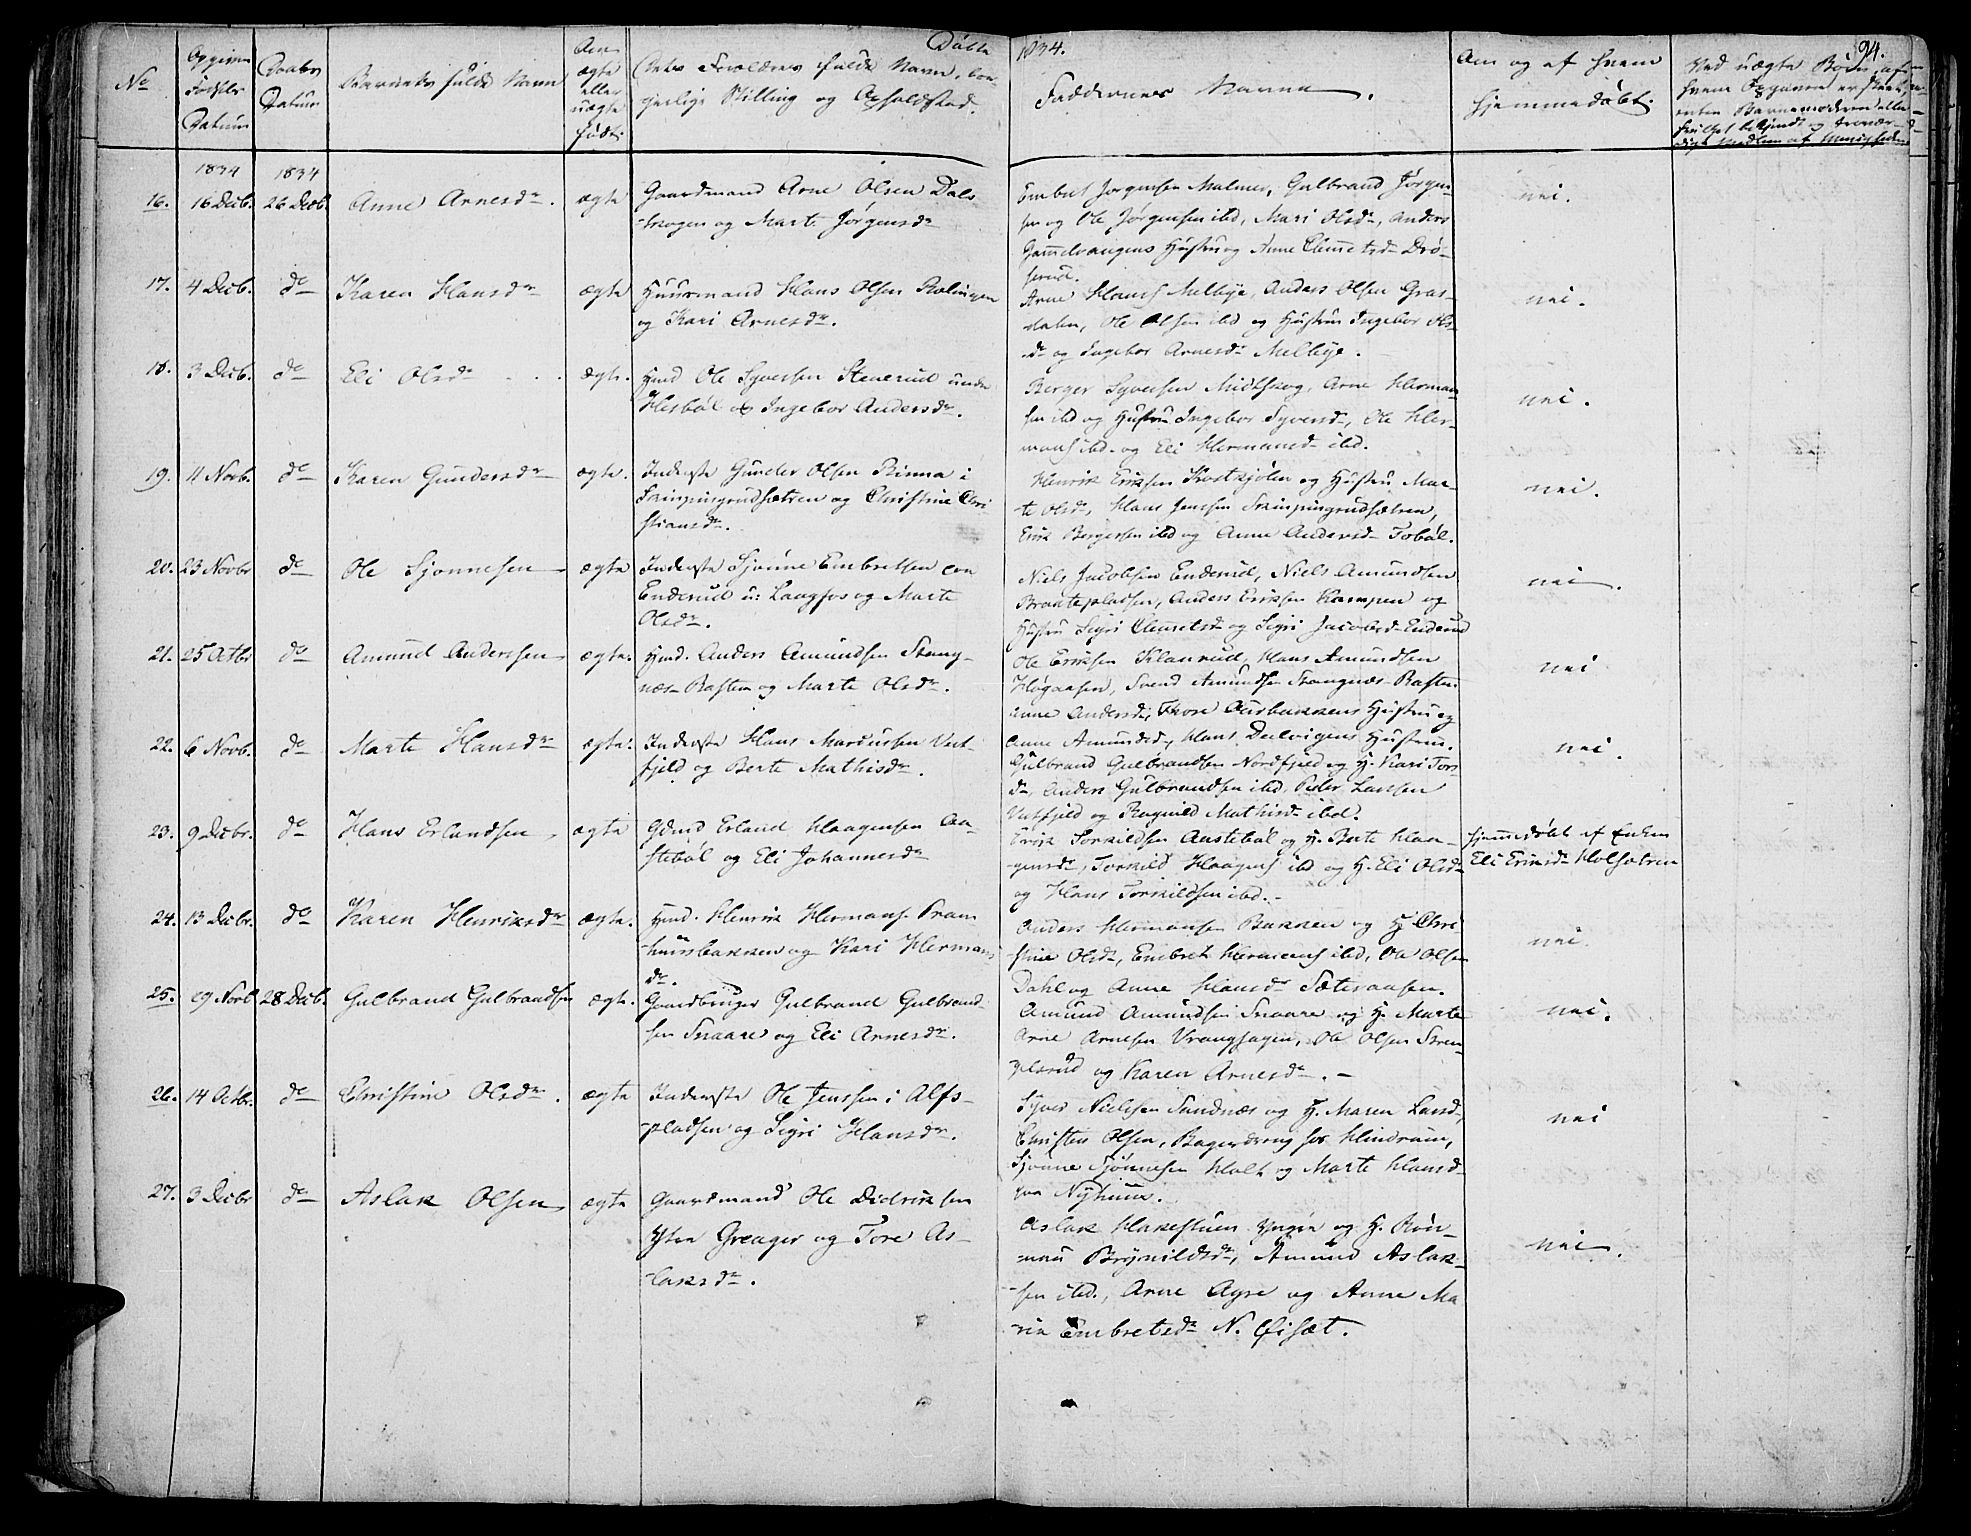 Døbte 1834. 94.
No
Opgiven Fødsels Datum
Daabs Datum
Barnets fulde Navn
Om ægte eller uægte født
Dets Forældres fulde Navn, bor-
gerlige Stilling og Opholdsted.
Faddernes Navne.
Om og af hvem
hjemmedøbt.
Ved uægte Børn, af
hvem
1834 1834
16. 16 Decb. 26 Decb. Anne Arnesdr. ægte Gaardmand Arne Olsen Dals-
-skogen og Marte Jørgensdr
Embret Jørgensen Malmer, Gulbrand Jørgen-
sen og Ole Jørgensen ibd, Mari Olsdr, Anders
Gammelvangens Hustru og Anne Clemetsdr Drö-
serud.
nei.
17. 4 Decb. do Karen Hansdr ægte Huusmand Hans Olsen
og Kari Arnesdr.
Arne Hans Melbye, Anders Olsen Gras-
dalen, Ole Olsen ibd og Hustru Ingebor Ols-
dr og Ingebor Arnesdr Melbye.
nei.
18. 3 Decb. do Eli Olsdr ægte. Hmd Ole Syversen Stenerud under
Hesböl og Ingebor Andersdr.
Berger Syversen Midtskog, Arne Herman-
sen ibd og Hustru Ingebor Syversdr, Ole Her-
mans ibd. og Eli Hermansdr ibd.
nei.
19. 11 Novb. do Karen Gundersdr ægte. Inderste Gunder Olsen Rinna i
og Christine Chri-
stiansdr.
Henrik Eriksen og Hustru Mar-
te Olsdr, Hans Jenssen
Erik Bergersen ibd og Anne Andersdr Foböl.
nei.
20. 23 Novbr do Ole Sjønnesen ægte Inderste Sjønne Embretsen
Enderud u: Langfos og Marte
Olsdr.
Niels Jacobsen Enderud, Niels Amundsen
Braatepladsen, Anders Eriksen Kampen og
Hustru Sigri Clemetsdr og Sigri Jacobsdr Enderud
nei.
21. 25 Octbr do Amund Anderssen ægte. Hmd. Anders Amundsen Stang-
næs-Rasten og Marte Olsdr.
Ole Eriksen Klanrud, Hans Amundsen
Høgaasen, Svend Amundsen Stangnæs-Rasten
Anne Andersd, Thore Aurbakkens Hustru og
Anne Amundsd, Hans Hustru.
nei
22. 6 Novb. do Marte Hansdr ægte. Inderste Hans Marcussen Vest-
fjeld og Berte Mathisdr.
Gulbrand Gulbrandsen Nordfjeld og H. Kari Tors-
dr, Anders Gulbrandsen ibd, Peder Larssen
Vestfjeld og Ragnild Mathisdr ibd.
nei.
23. 9 Decbr. do Hans Erlandsen ægte Gdmd Erland Haagensen Au-
stböl og Eli Johannesdr
Erik Torkildsen Austeböl og H. Berte Haa-
-gensdr, Torkild Haagens ibd og H. Eli Olsdr
og Hans Torkildsen ibd.
hjemmedøbt af Enken
Eli Eriksdr Holsætren
24. 13 Decbr. do Karen Henriksdr ægte. Hmd. Henrik Hermans. Pram-
huusbakken og Kari Hermans
dr.
Anders Hermansen Bakken og H Chri-
stine Olsdr, Embret Hermans ibd, Ole Olsen
Dahl og Anne Hansdr Sæteraasen.
nei.
25. 19 Novb 28 Decb. Gulbrand Gulbrandsen ægte. Gaardbruger Gulbrand Gulbrand-
sen Snaare og Eli Arnesdr.
Amund Amundsen Snaare og H. Marte
Arne Arnesen Vranghagen, Ole Olsen
og Karen Arnesdr.
nei.
26. 14 Octbr. do Christine Olsdr. ægte Inderste Ole Jenssen i Alfs-
-pladsen og Sigri Hansdr.
Syver Nielssen Sundnæs og H. Maren Larsd,
Christen Olsen, Bagerdreng hos Hindrum,
Sjønne Sjønnesen Holt og Marte Hansd
paa Nyhuus.
nei
27. 3 Decbr do Aslak Olsen ægte Gaardmand Ole Didriksen
Ystre Greager og Tore As-
laksdr.
Aslak Hakestuen yngre og H. Rön-
naug Brynildsdr, Amund Aslak-
sen ibd., Arne Ayre og Anne Ma-
rie Embretsdr N. Öiset.
nei.